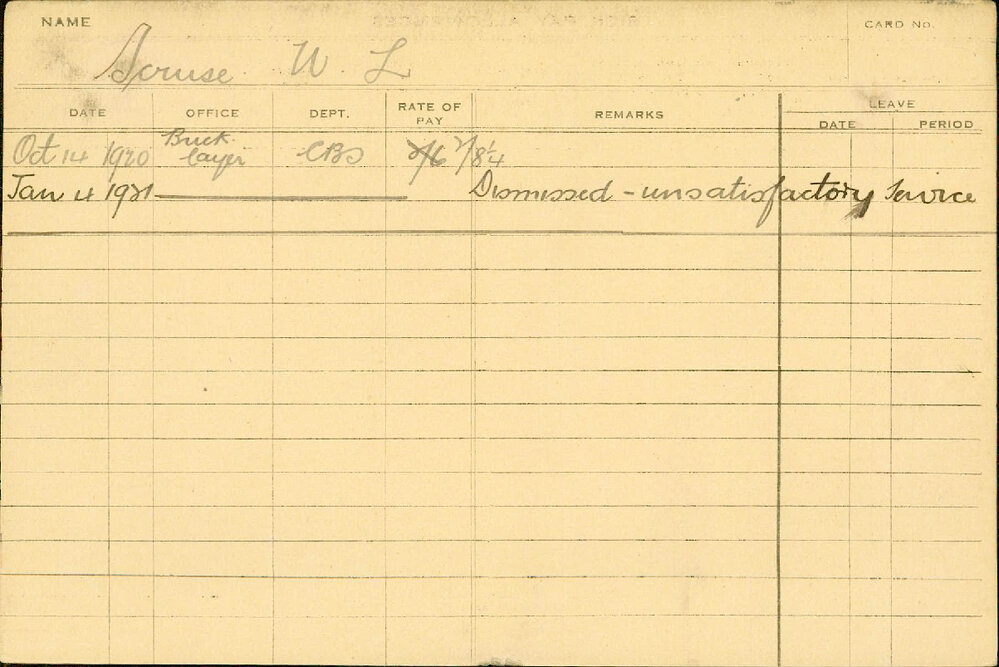 NAME
CARD No.
Scruse W. L
DATE OFFICE DEPT. RATE OF PAY REMARKS LEAVE
DATE PERIOD
Oct 14 1920 Brick layer CBS 2/6 2/8¼
Jan 4 1921 Dismissed - unsatisfactory Service